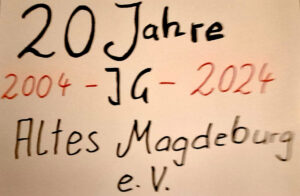 20 Jahre
2004 - JG - 2024
Altes Magdeburg
e.V.